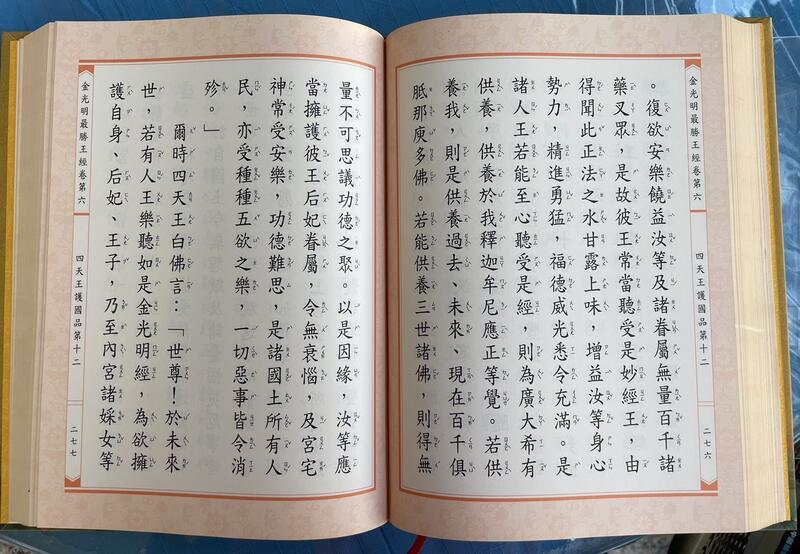 金光明最勝王經卷第六
四天王護國品第十二
二七六
。復欲安樂饒益汝等及諸眷屬無量百千諸
藥叉眾，是故彼王常當聽受是妙經王，由
得聞此正法之水甘露上味，增益汝等身心
勢力，精進勇猛，福德威光悉令充滿。是
諸人王若能至心聽受是經，則為廣大希有
供養，供養於我釋迦牟尼應正等覺。若供
養我，則是供養過去、未來、現在百千俱
胝那庾多佛。若能供養三世諸佛，則得無
量不可思議功德之聚。以是因緣，汝等應
當擁護彼王后妃眷屬，令無衰惱，及宮宅
神常受安樂，功德難思，是諸國土所有人
民，亦受種種五欲之樂，一切惡事皆令消
殄。」
爾時四天王白佛言：「世尊！於未來
世，若有人王樂聽如是金光明經，為欲擁
護自身、后妃、王子，乃至內宮諸婇女等
金光明最勝王經卷第六
四天王護國品第十二
二七七